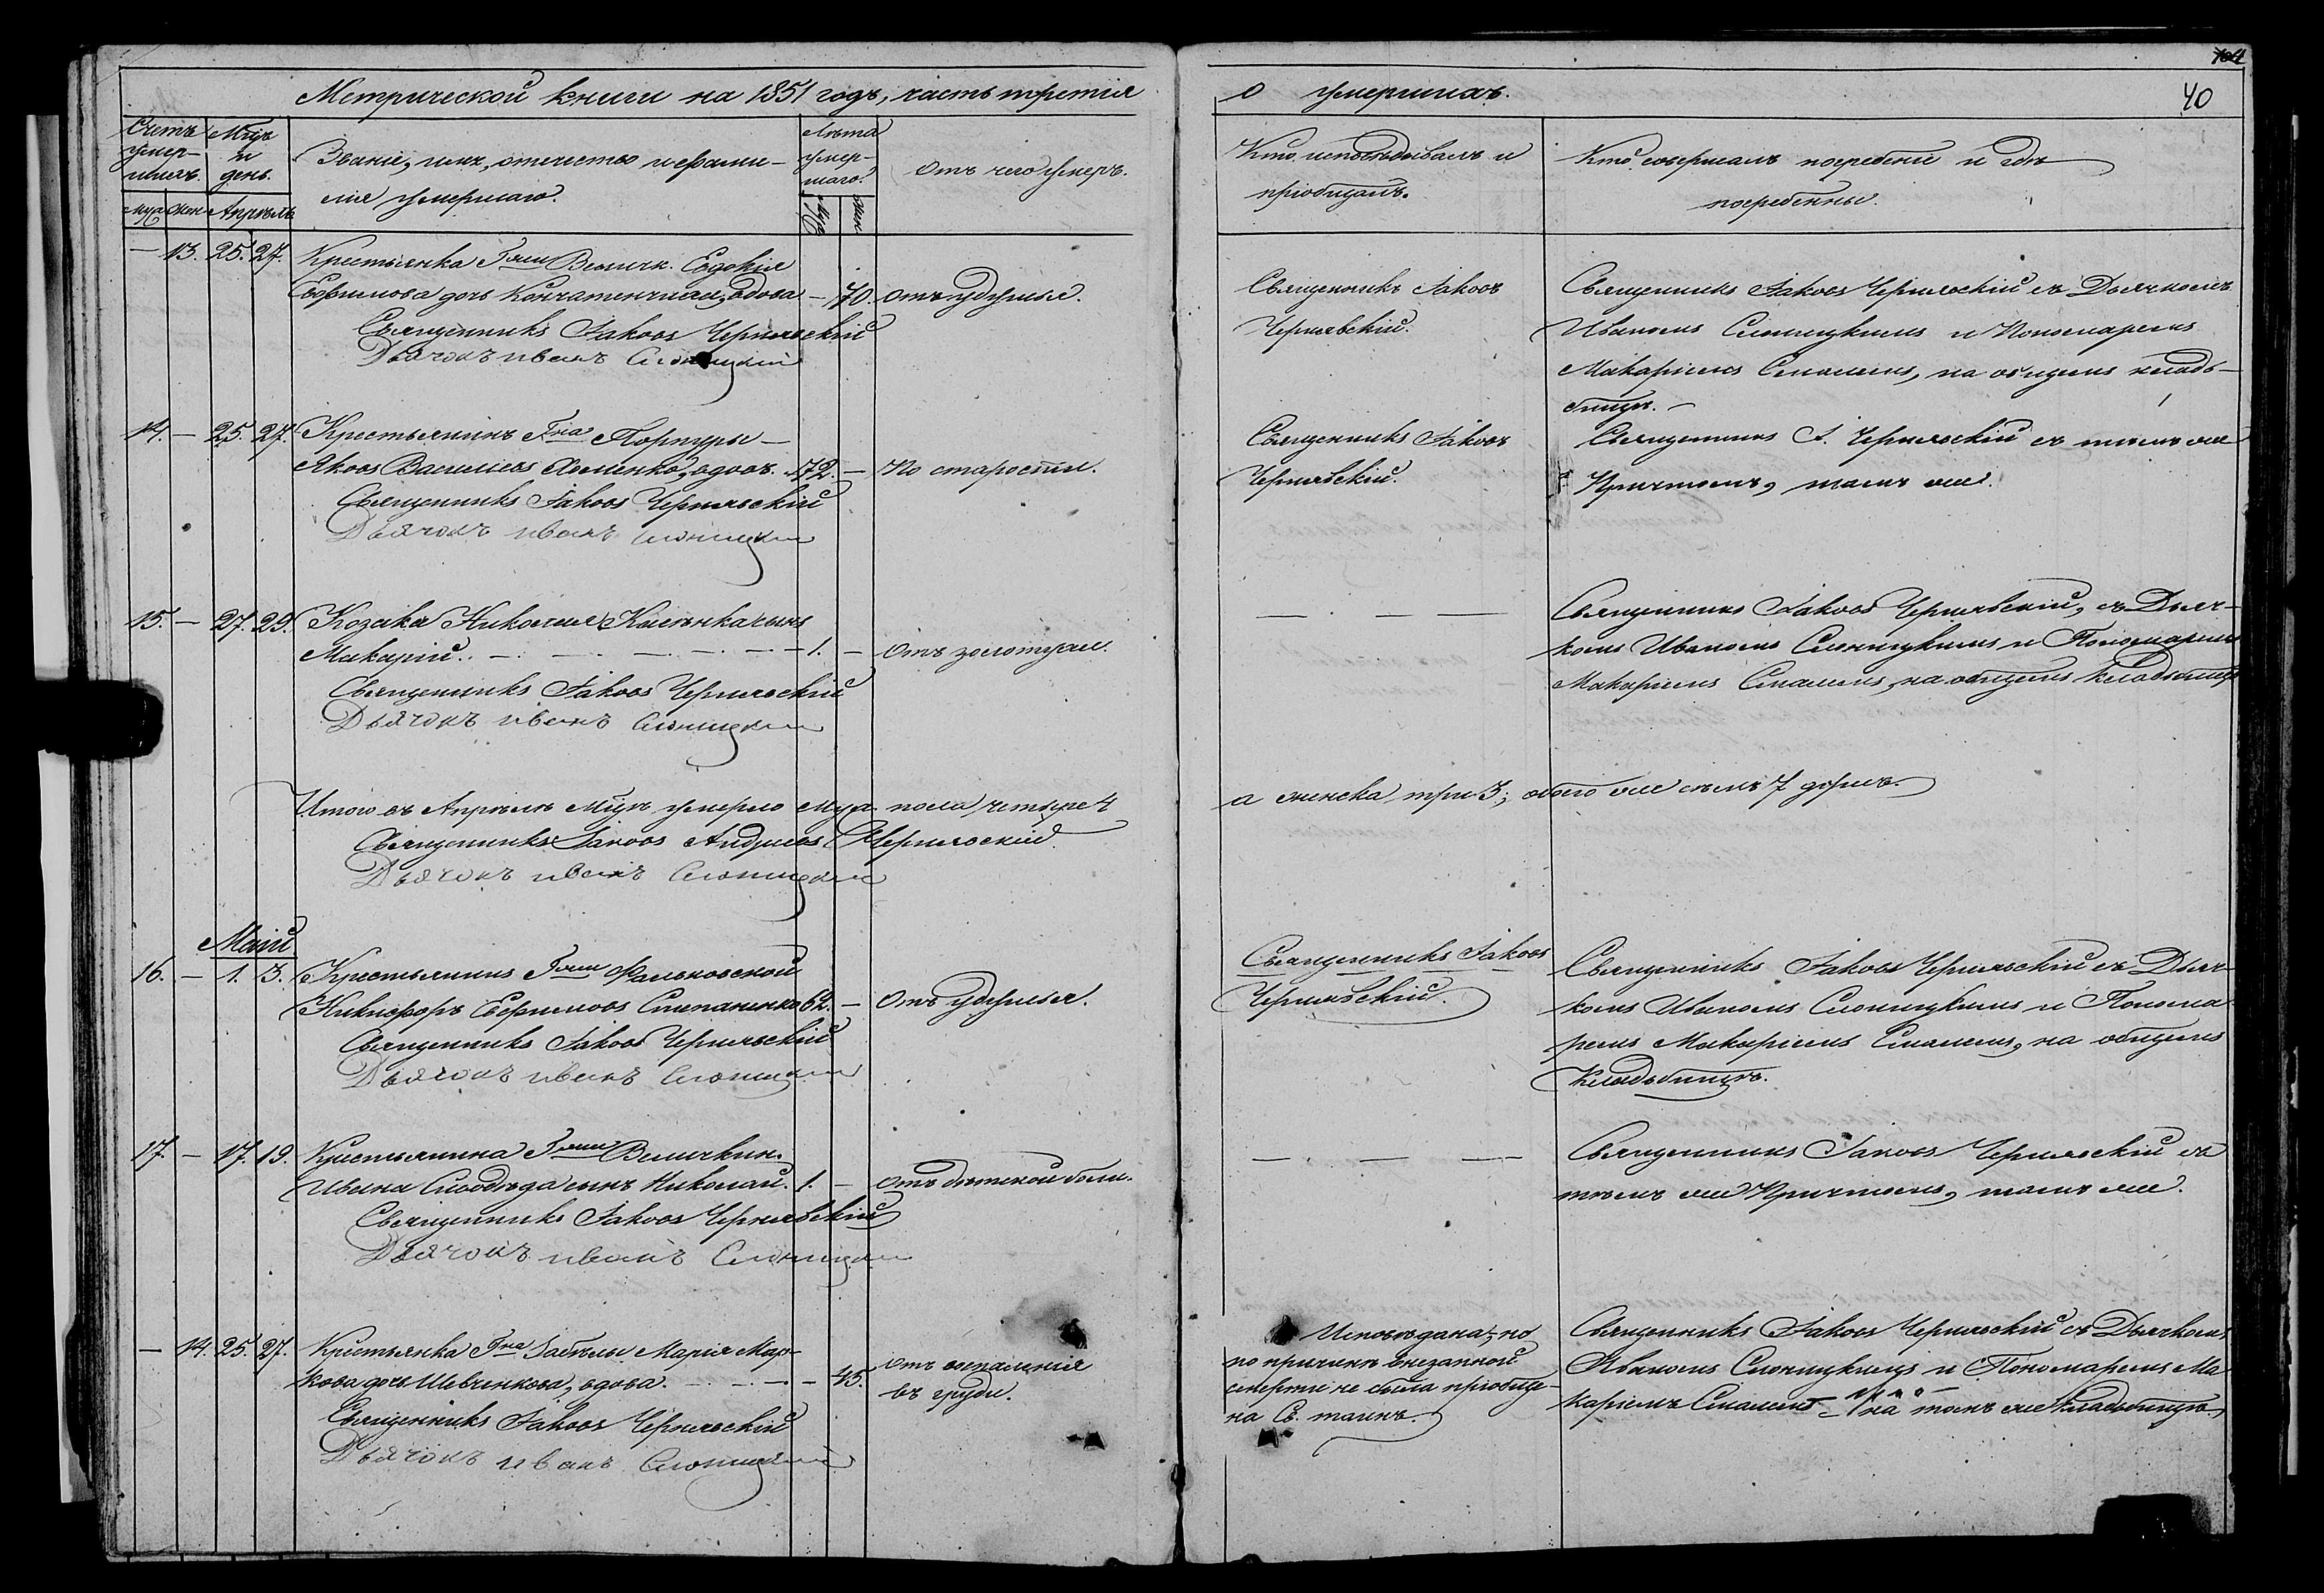 104
40
Метрической книги на 1851 годъ, часть третія
о умершихъ.
Счетъ умер-шихъ.
Мцъ и день.
Званіе, имя, отчество и фами-
лія умершаго.
Лѣта умер-шаго.
Отъ чего умеръ.
Кто исповѣдывалъ и
пріобщалъ.
Кто совершалъ погребеніе и гдѣ
погребены.
Муж Жен Апрѣль
Муж Жен
— 13. 25. 27. Крестьянка Гжи Величк. Евдокія
Ефимова дочь вдова — 70. отъ удушья.
Священникъ Іаковъ Чернявскій
Дьячокъ иванъ Слоницкій
Священникъ Іаковъ
Чернявскій.
Священникъ Іаковъ Чернявскій съ Дьячкомъ
Иваномъ Слоницкимъ и Пономаремъ
Макаріемъ Смалемъ, на общемъ кладб-
бищѣ. —
14. — 25. 27. Крестьянинъ Гна
Яковъ Васильевъ вдовъ. 72. — По старости.
Священникъ Іаковъ Чернявскій
Дьячокъ иванъ Слоницкій
Священникъ Іаковъ
Чернявскій.
Священникъ І. Чернявскій съ тѣмъ же
Причтомъ, тамъ же.
15. — 27. 29. Козака Николая сынъ
Макарій. — 1. — Отъ золотухи.
Священникъ Іаковъ Чернявскій
Дьячокъ иванъ Слоницкій
— — —
Священникъ Іаковъ Чернявскій, съ Дьяч-
комъ Иваномъ Слоницкимъ и Пономаремъ
Макаріемъ Смалемъ, на общемъ кладбищѣ
Итого въ Апрѣлѣ мцѣ умерло муж. пола четыре 4
а женска три 3; обоего же семь 7 душъ.
Священникъ Іаковъ Андреевъ Чернявскій
Дьячокъ иванъ Слоницкій
Маій
16. — 1. 3. Крестьянинъ Гжи Фальковской
Никифоръ Ефимовъ Степаненко 62. — Отъ удушья.
Священникъ Іаковъ Чернявскій
Дьячокъ иванъ Слоницкій
Священникъ Іаковъ
Чернявскій.
Священникъ Іаковъ Чернявскій съ Дьяч-
комъ Иваномъ Слоницкимъ и Понома-
ремъ Макаріемъ Смалемъ, на общемъ
Кладбищѣ.
17. — 17. 19. Крестьянина Гжи Величкин.
Ивана сынъ Николай. 1. — Отъ дѣтской боли.
Священникъ Іаковъ Чернявскій
Дьячокъ иванъ Слоницкій
— — —
Священникъ Іаковъ Чернявскій съ
тѣмъ же Причтомъ, тамъ же.
— 14. 25. 27. Крестьянка Гна Забѣлы Марія Мар-
кова дочь Шевченкова, вдова. — 45. Отъ воспаленія
въ груди.
Священникъ Іаковъ Чернявскій
Дьячокъ иванъ Слоницкій
Исповѣдана, но
по причинѣ внезапной
смерти не была пріобще-
на Св. таинъ.
Священникъ Іаковъ Чернявскій съ Дьячкомъ
Иваномъ Слоницкимъ и Пономаремъ Ма-
каріемъ Смалемъ — на томъ же кладбищѣ.